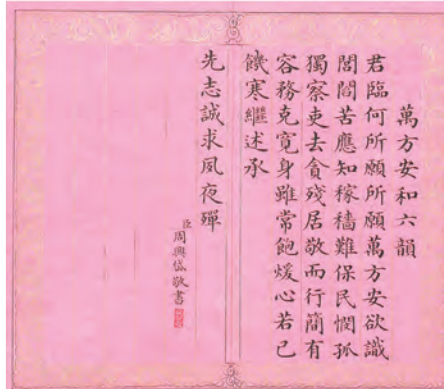 萬方安和六韻
君臨何所願所願萬方安欲識
閭閻苦應知稼穡難保民憫孤
獨察吏去貪殘居敬而行簡有
容務克寬身雖常飽煖心若己
饑寒繼述承
先志誠求夙夜殫
臣周興岱敬書